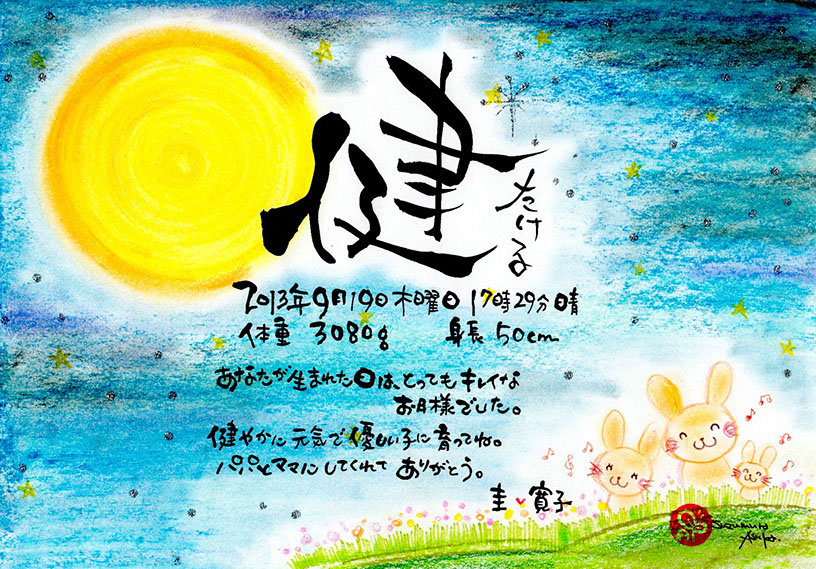 健
たける
2013年9月19日木曜日 17時29分 晴
体重 3080g 身長 50cm
あなたが生まれた日は、とってもキレイな
お月様でした。
健やかに元気で優しい子に育ってね。
パパとママにしてくれて ありがとう。
圭♥寛子